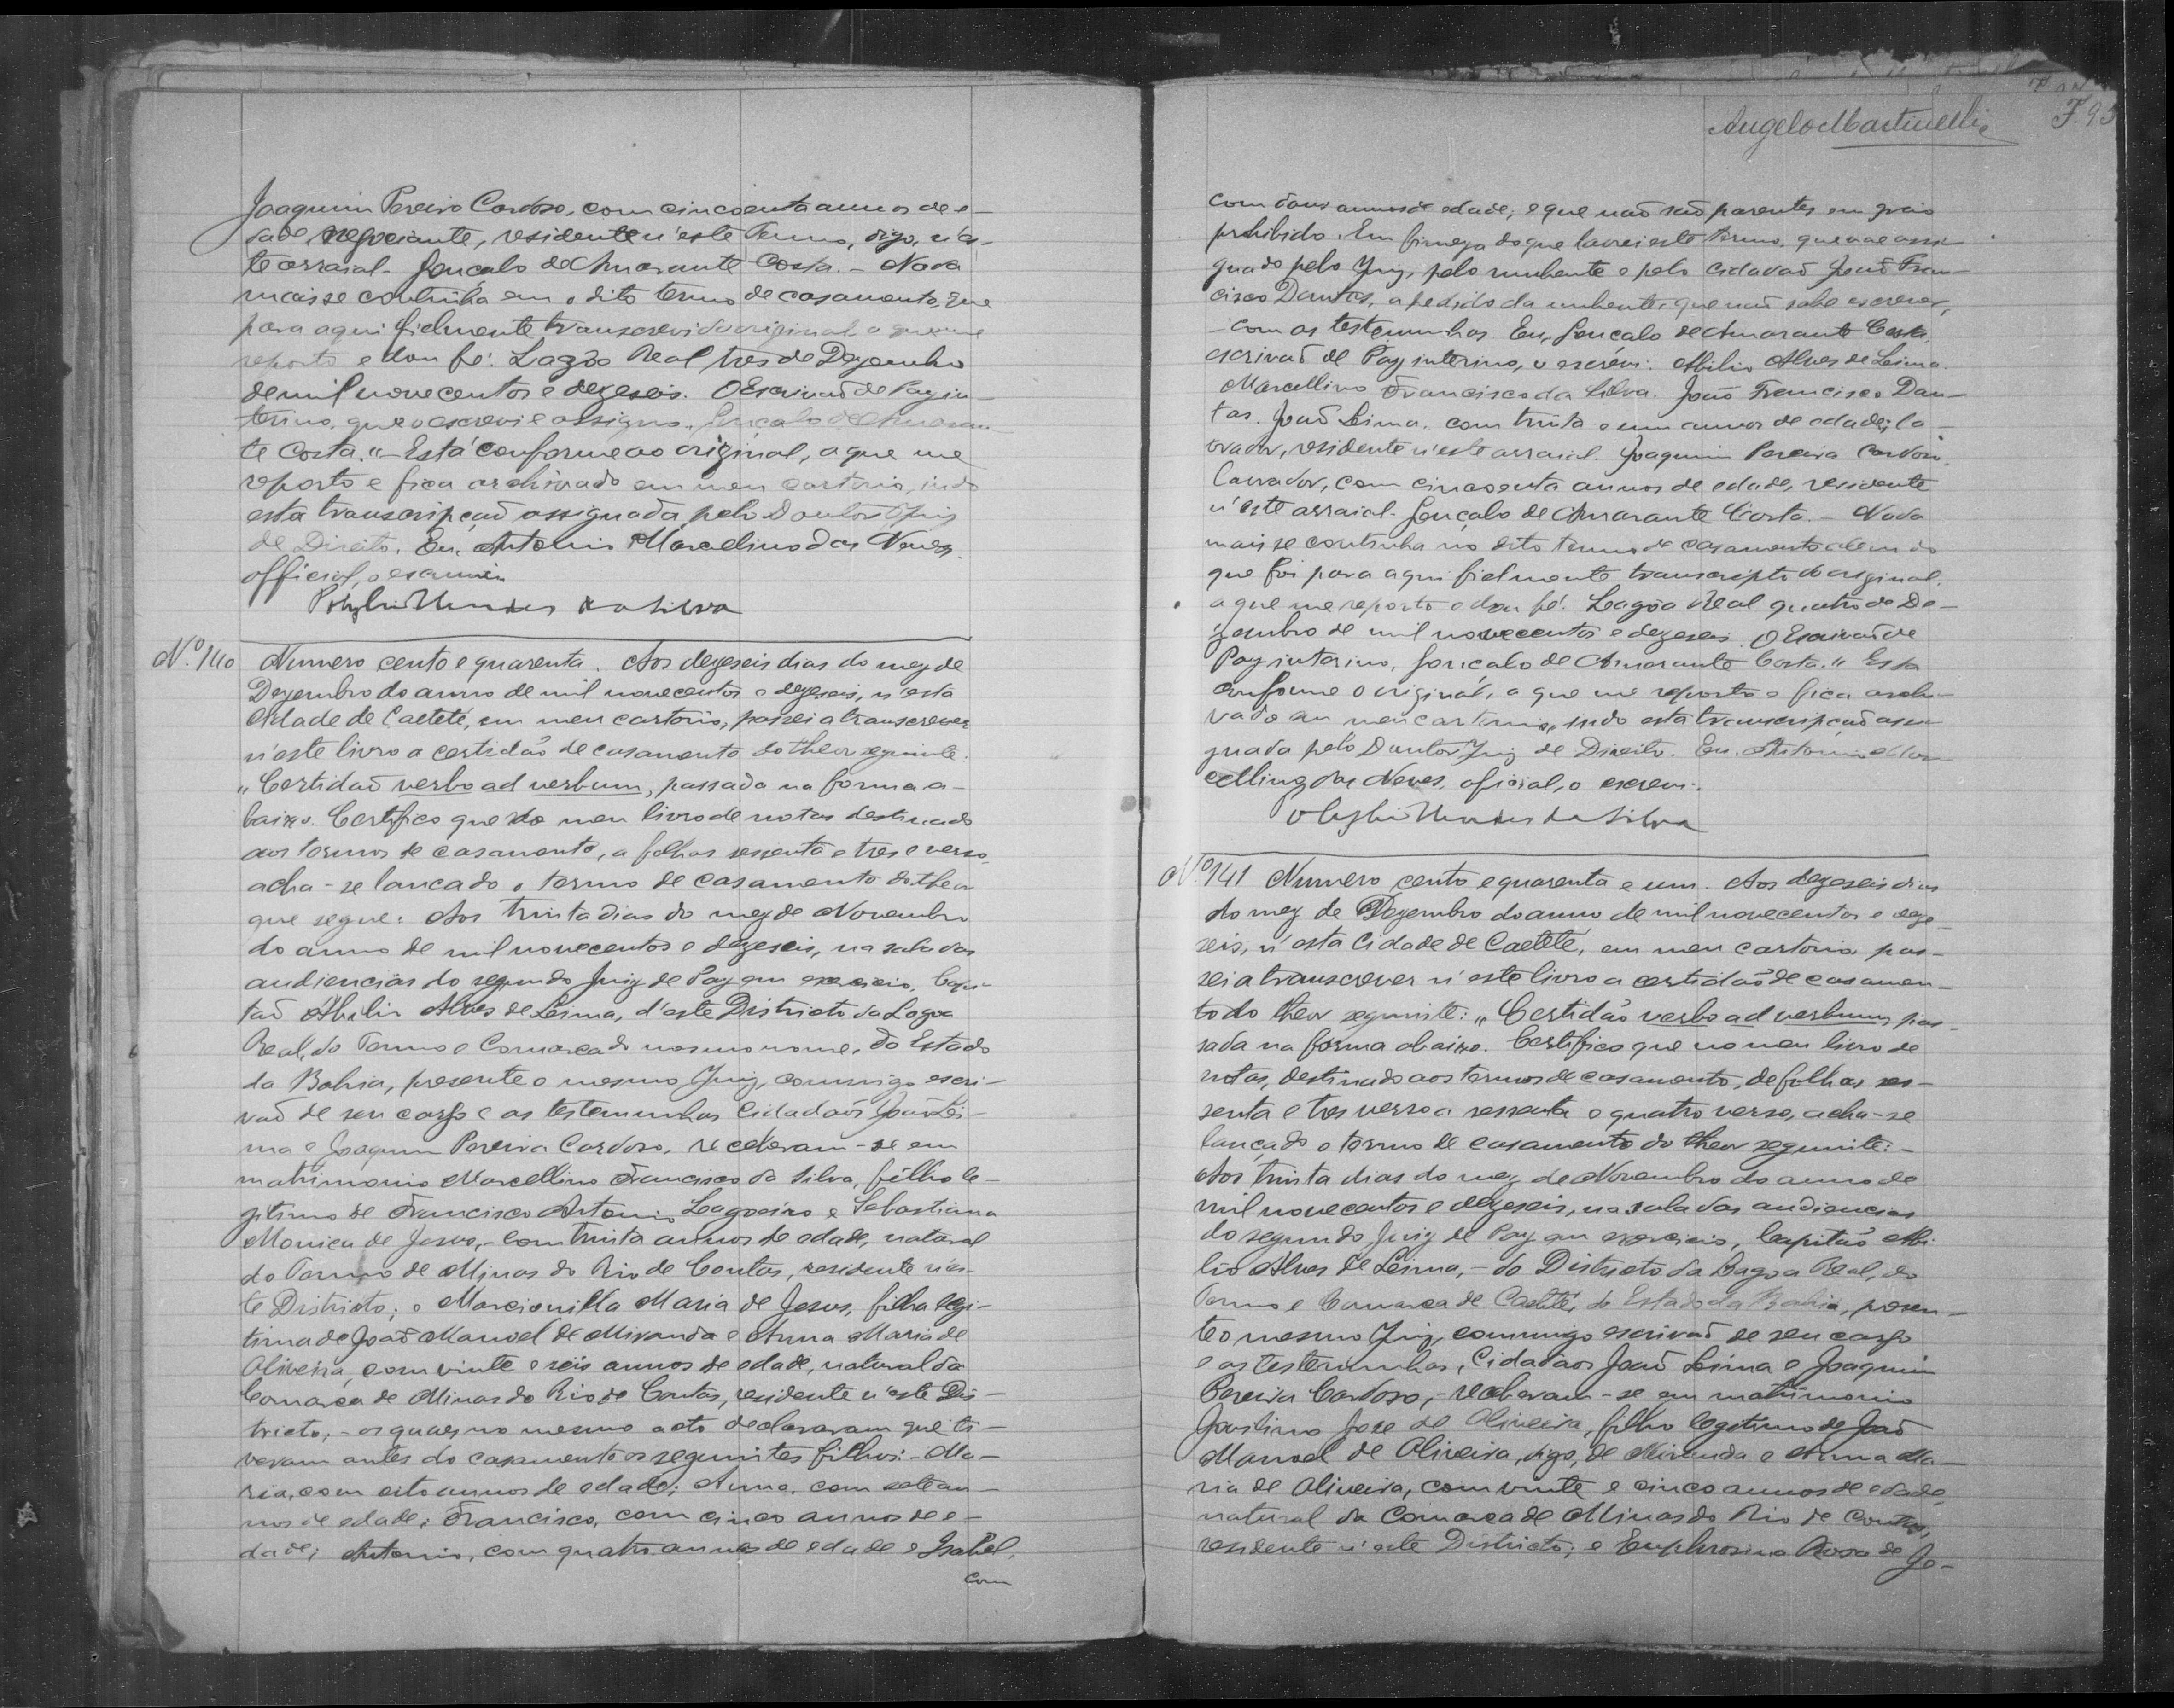 Joaquim Pereira Cardoso, com cincoenta annos de e-
dade negociante, residente n'este Termo, digo, n'es-
te arraial. Gonçalo de Amarante Costa. - Nada
mais se continha em o dito termo de casamento, que
para aqui fielmente transcrevi do original a que me
reporto e dou fé. Lagôa Real tres de Dezembro
de mil novecentos e dezeseis. O Escrivaõ de Paz in-
terino, que o escrevi e assigno. Gonçalo de Amaran-
te Costa." Está conforme ao original, a que me
reporto e fica archivado em meu cartorio, indo
esta transcripçaõ assignada pelo Doutor Juiz
de Direito. Eu, Antonio Marcelino das Neves,
official, o escrevi
Mendes da Silva
N.º 140 Numero cento e quarenta. Aos dezeseis dias do mez de
Dezembro do anno de mil novecentos e dezeseis, n'esta
Cidade de Caeteté, em meu cartorio, passei a transcrever
n'este livro a certidaõ de casamento do theor seguinte.
"Certidaõ verbo ad verbum, passada na forma a-
baixo. Certifico que do meu livro de notas destinado
aos termos de casamento, a folhas sessenta e tres e verso,
acha-se lancado o termo de casamento do theor
que segue: Aos trinta dias do mez de Novembro
do anno de mil novecentos e dezeseis, na sala das
audiencias do segundo Juiz de Paz em exercicio, Capi-
taõ Abilio Alves de Leima, d'este Districto da Lagoa
Real, do Termo e Comarca do mesmo nome, do Estado
da Bahia, presente o mesmo Juiz, commigo escri-
vaõ de seu cargo e as testemunhas Cidadaõs Joaõ Lei-
ma e Joaquim Pereira Cardoso, receberam-se em
matrimonio Marcellino Francisco da Silva, filho le-
gitimo de Francisco Antonio Lagoeiro e Sebastiana
Monica de Jesus, - com trinta annos de edade, natural
do Termo de Minas do Rio de Contas, residente n'es-
te Districto; e Marcionilla Maria de Jesus, filha legi-
tima de Joaõ Manoel de Miranda e Anna Maria de
Oliveira, com vinte e seis annos de edade, natural da
Comarca de Minas do Rio de Contas, residente n'este Dis-
tricto; - os quaes no mesmo acto declararam que ti-
veram antes do casamento os seguintes filhos: - Ma-
ria, com oito annos de edade; Anna, com sete an-
nos de edade; Francisco, com cinco annos de e-
dade; Antonio, com quatro annos de edade e Isabel,
com
Angelo Martinelli
F. 93
com dous annos de edade; e que naõ saõ parentes em grao
prohibido. Em firmeza do que lavrei este termo, que vae assi-
gnado pelo Juiz, pelo nubente e pelo cidadaõ Joaõ Fran-
cisco Dantas, a pedido da nubente, que naõ sabe escrever,
- com as testemunhas. Eu, Gonçalo de Amarante Costa,
escrivaõ de Paz interino, o escrevi. Abilio Alves de Leima.
Marcellino Francisco da Silva. Joaõ Francisco Dan-
tas. Joaõ Leima, com trinta e um annos de edade, la-
vrador, residente n'este arraial. Joaquim Pereira Cardoso,
lavrador, com cincoenta annos de edade, residente
n'este arraial. Gonçalo de Amarante Costa. - Nada
mais se continha no dito termo de casamento alem do
que foi para aqui fielmente transcripto do original,
a que me reporto e dou fé. Lagôa Real quatro de De-
zembro de mil novecentos e dezeseis. O Escrivaõ de
Paz interino, Gonçalo de Amarante Costa." Está
conforme o original, a que me reporto e fica archi-
vado em meu cartorio, indo esta transcripçaõ assi-
gnada pelo Doutor Juiz de Direito. Eu, Antonio Mar-
cellino das Neves, oficial, o escrevi.
Mendes da Silva
N.º 141 Numero cento e quarenta e um. Aos dezeseis dias
do mez de Dezembro do anno de mil novecentos e deze-
seis, n'esta Cidade de Caeteté, em meu cartorio pas-
sei a transcrever n'este livro a certidaõ de casamen-
to do theor seguinte: "Certidaõ verbo ad verbum, pas-
sada na forma abaixo. Certifico que no meu livro de
notas, destinado aos termos de casamento, de folhas ses-
senta e tres verso a sessenta e quatro verso, acha-se
lançado o termo de casamento do theor seguinte: -
Aos trinta dias do mez de Novembro do anno de
mil novecentos e dezeseis, na sala das audiencias
do segundo Juiz de Paz em exercicio, Capitaõ Abi-
lio Alves de Leima, - do Districto da Lagoa Real, do
Termo e Comarca de Caeteté, do Estado da Bahia, presen-
te o mesmo Juiz, commigo escrivaõ de seu cargo
e as testemunhas, Cidadaos Joaõ Leima e Joaquim
Pereira Cardoso, - receberam-se em matrimonio
José de Oliveira, filho legitimo de Joaõ
Manoel de Oliveira, digo, de Miranda e Anna Ma-
ria de Oliveira, com vinte e cinco annos de edade,
natural da Comarca de Minas do Rio de Contas,
residente n'este Districto; e Euphrosina Rosa de Je-